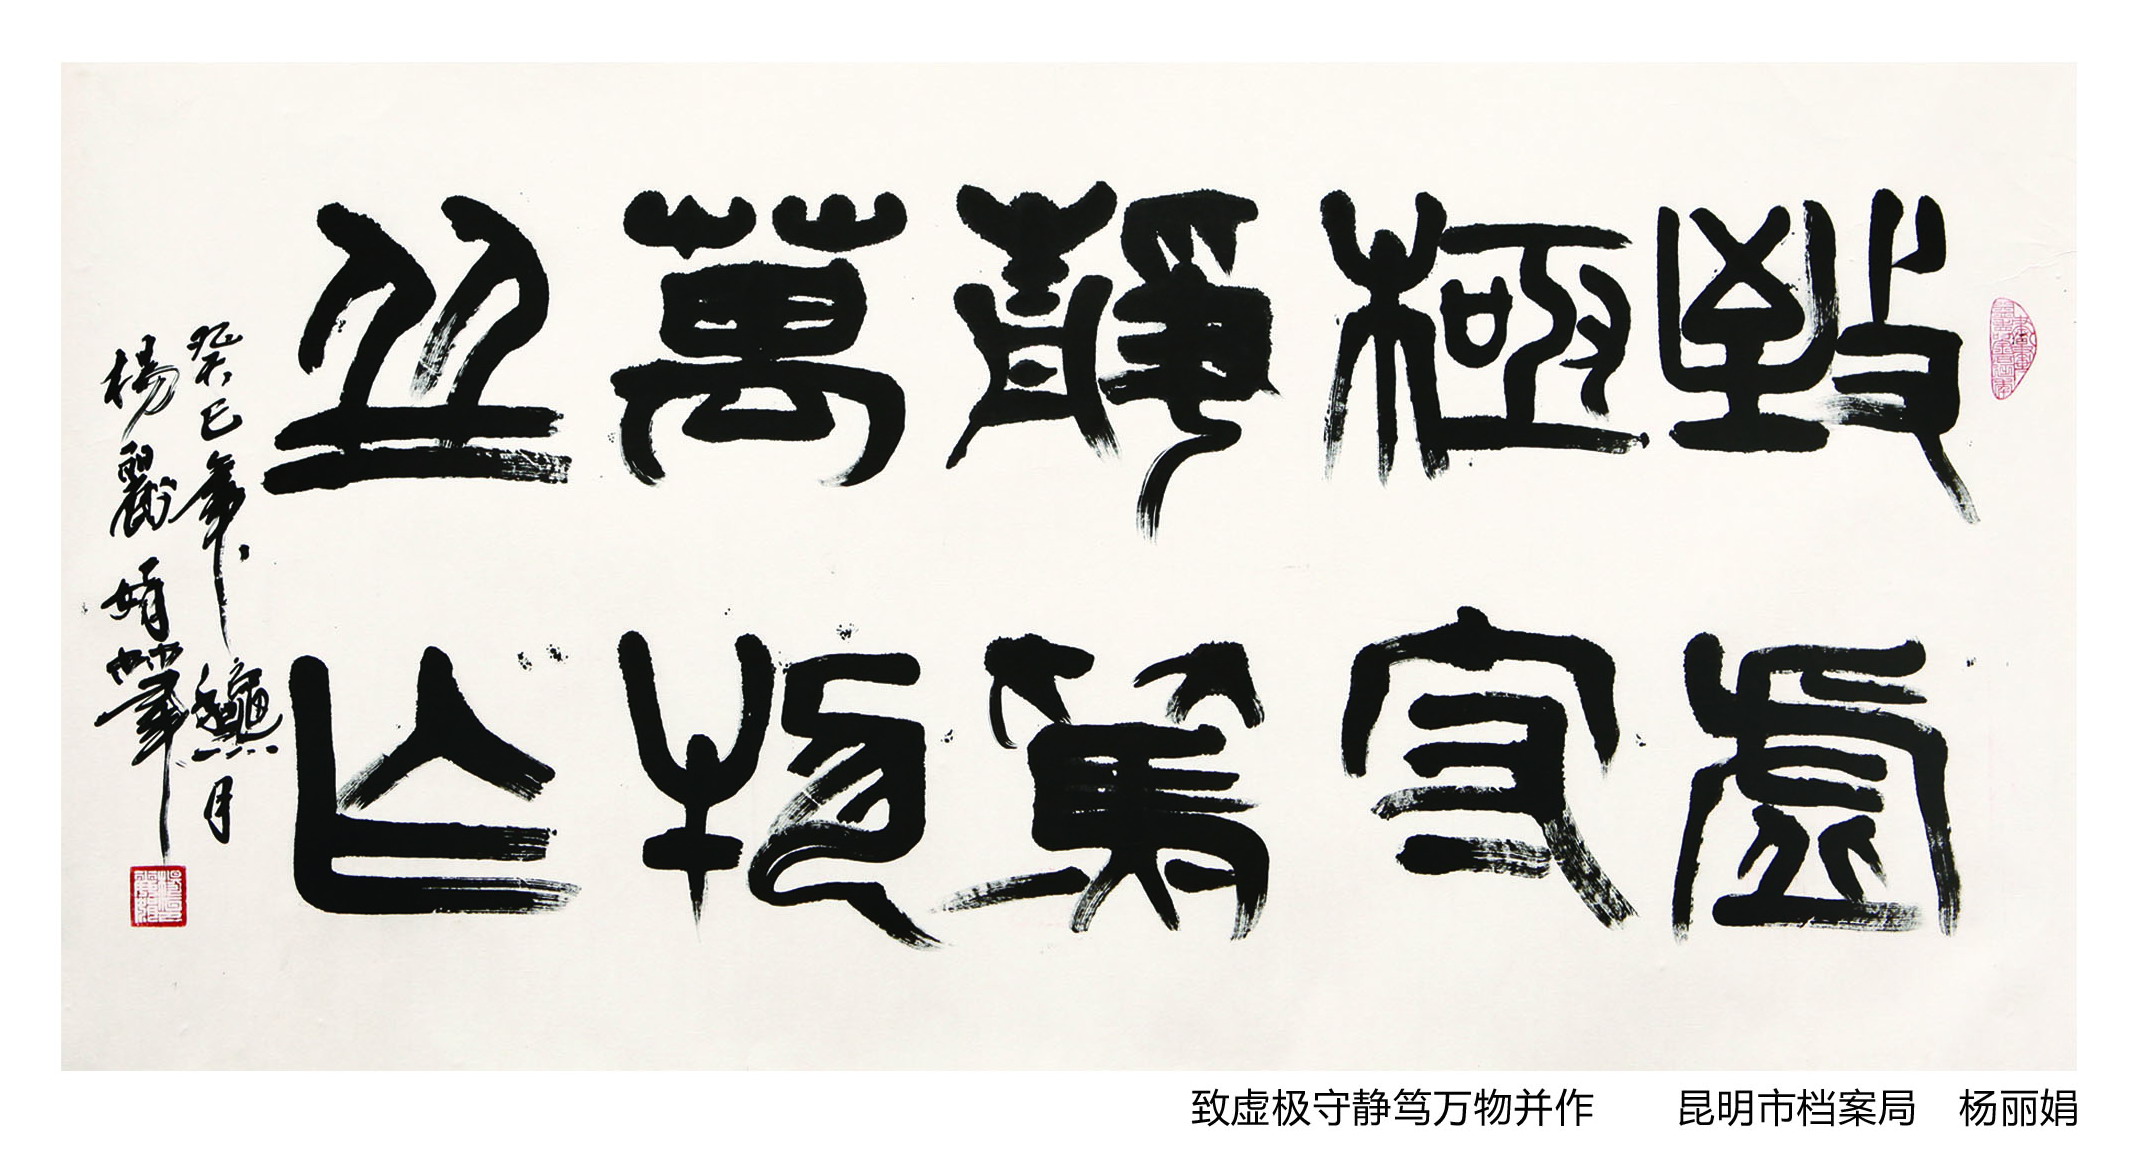 致虛
極守
靜篤
萬物
並作
癸巳年龝月
楊麗娟筆
致虚极守静笃万物并作 昆明市档案局 杨丽娟